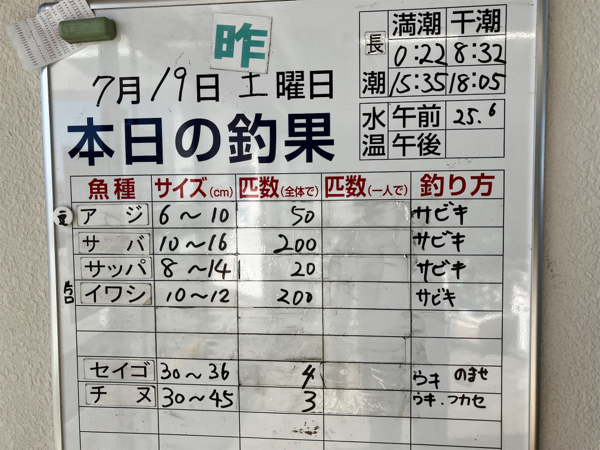 昨
7月19日 土曜日
本日の釣果
長潮 満潮 干潮
0:22 8:32
15:35 18:05
水温 午前 25.6
午後
魚種 サイズ(cm) 匹数(全体で) 匹数(一人で) 釣り方
豆 アジ 6～10 50 サビキ
サバ 10～16 200 サビキ
サッパ 8～14 20 サビキ
片口 イワシ 10～12 200 サビキ
セイゴ 30～36 4 ウキ のませ
チヌ 30～45 3 ウキ.フカセ